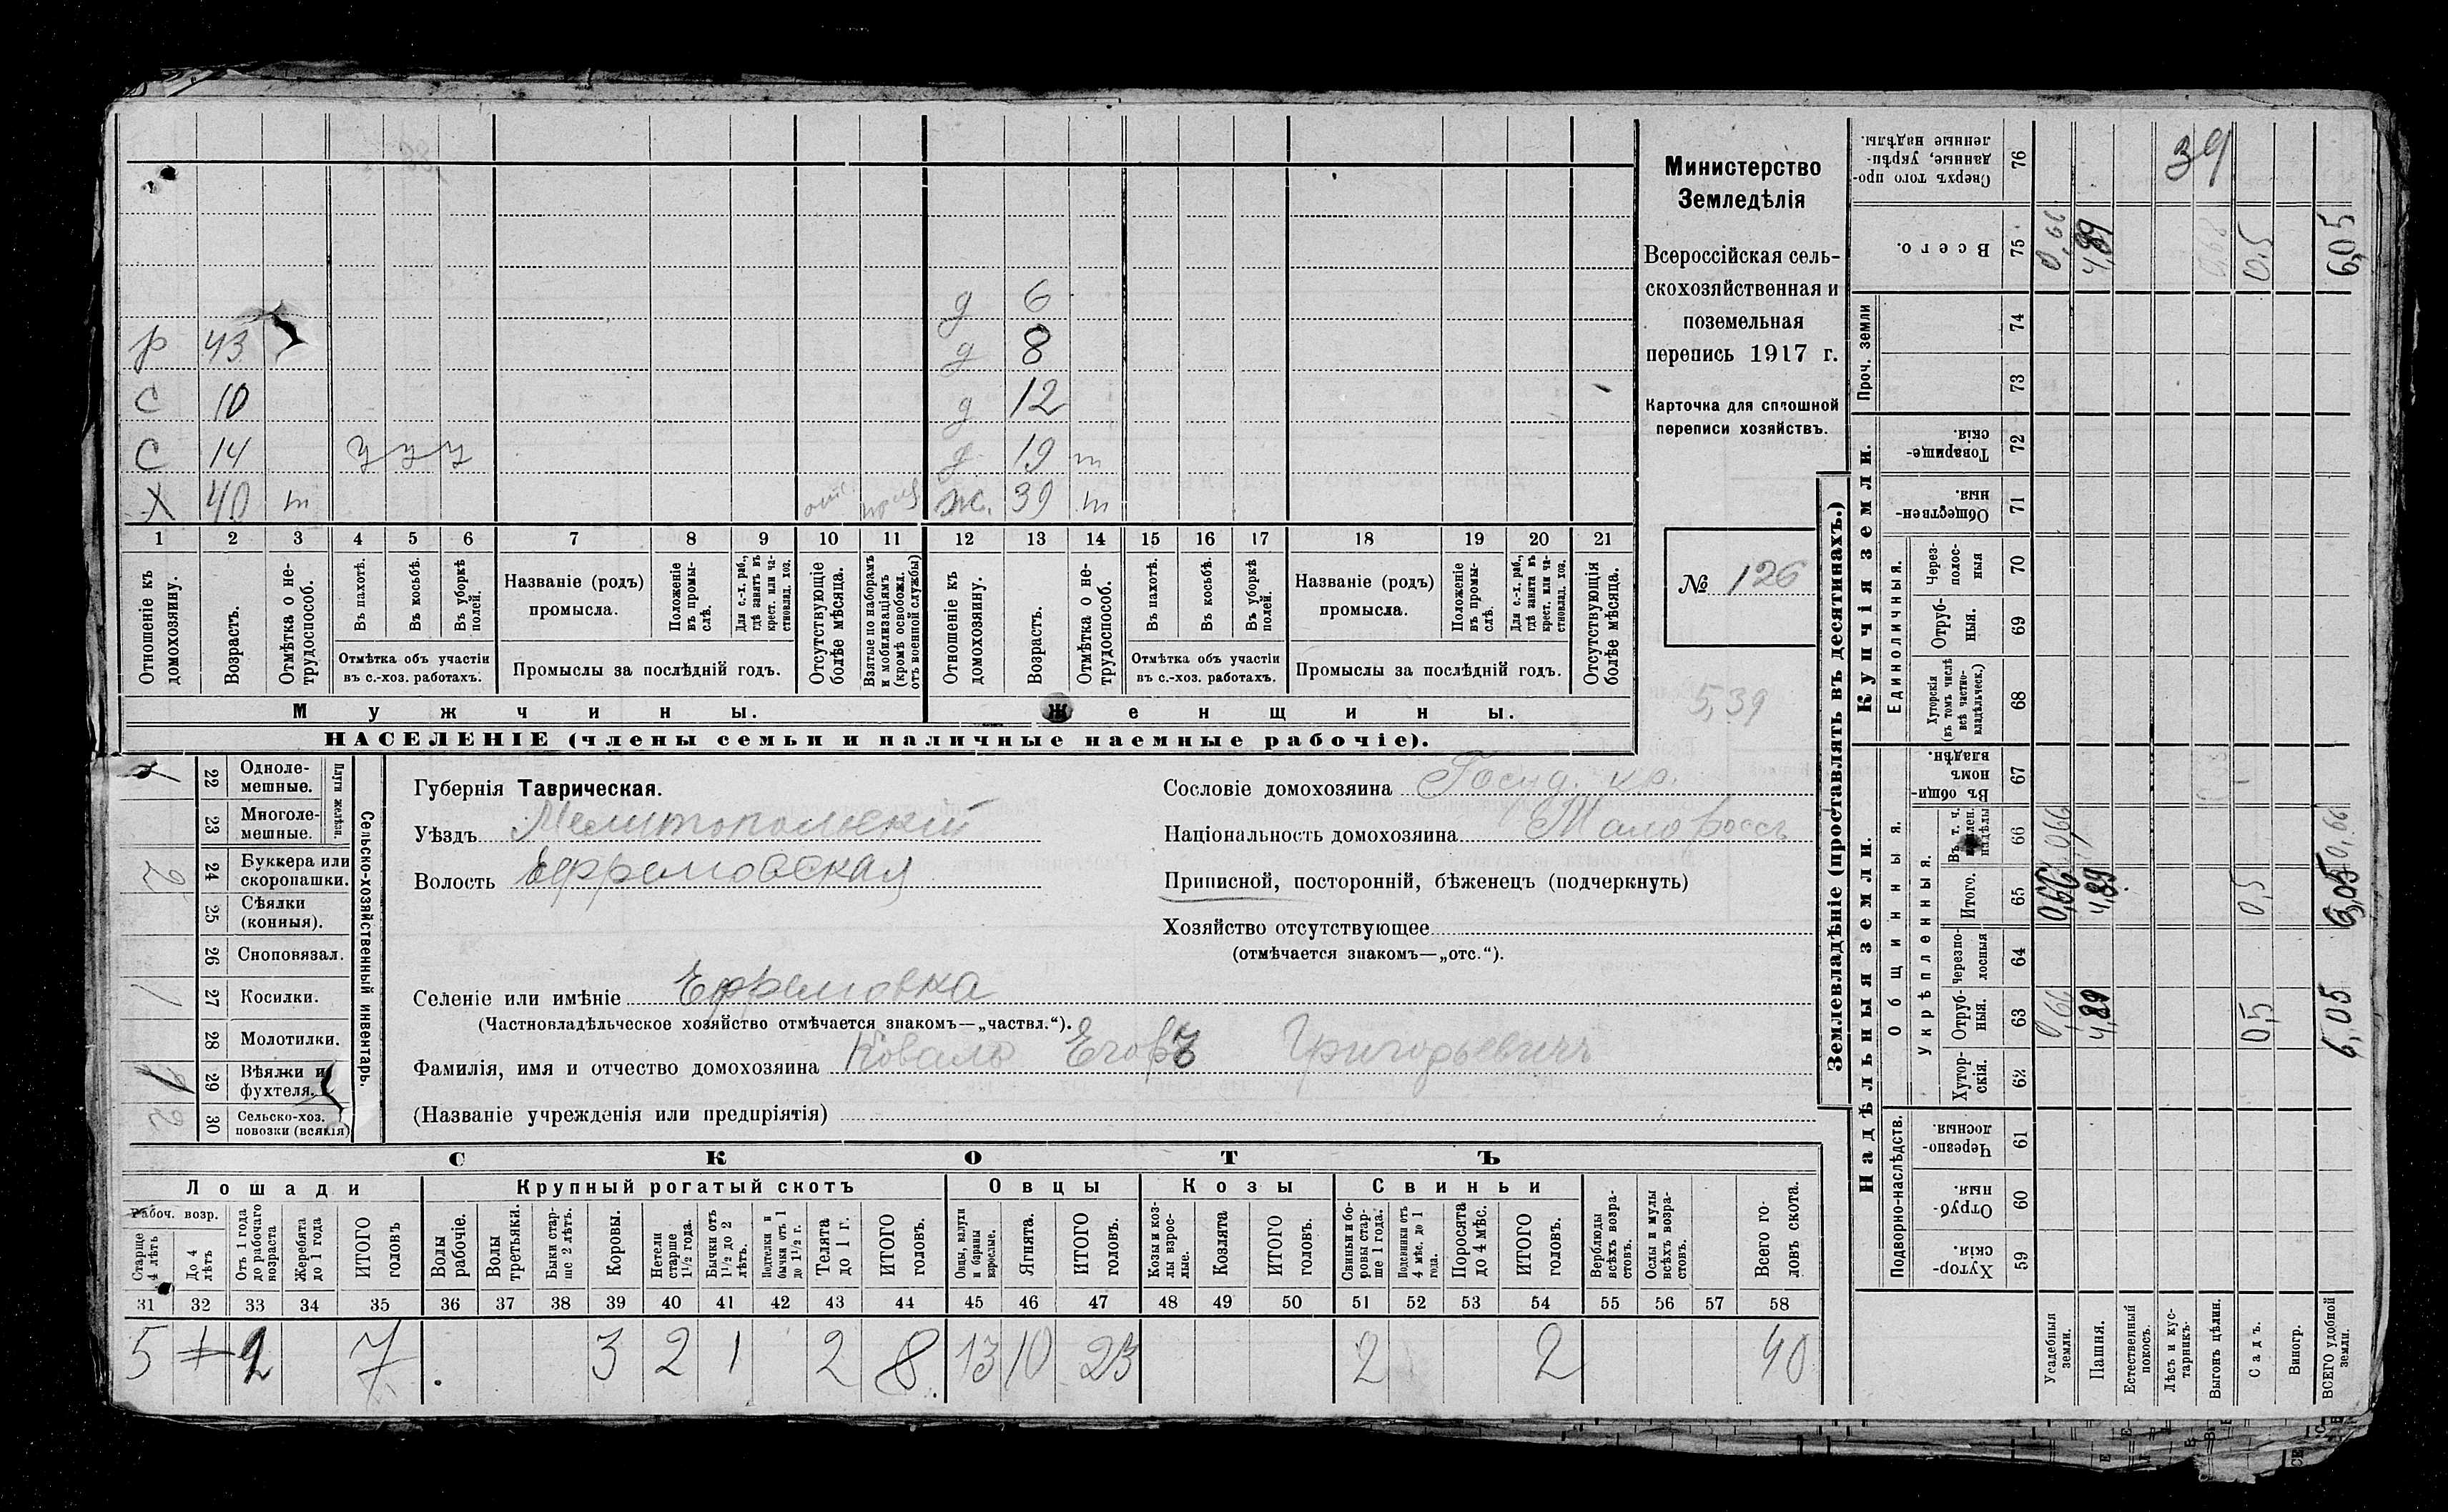 Министерство
Земледѣлія
Всероссійская сель-
скохозяйственная и
поземельная
перепись 1917 г.
Карточка для сплошной
переписи хозяйствъ.
№ 126
5,39
д 6
р 43 д 8
С 10 д 12
С 14 у у у д 19 т
Х 40 т отс. ж. 39 т
1 2 3 4 5 6 7 8 9 10 11 12 13 14 15 16 17 18 19 20 21
Отношеніе къ домохозяину.
Возрастъ.
Отмѣтка о не-трудоспособ.
Въ пахотѣ.
Въ косьбѣ.
Въ уборкѣ полей.
Отмѣтка объ участіи
въ с.-хоз. работахъ.
Названіе (родъ)
промысла.
Положеніе въ промы-слѣ.
Для с.-х. раб., гдѣ занятъ въ крест. или ча-стновлад. хоз.
Промыслы за послѣдній годъ.
Отсутствующіе болѣе мѣсяца.
Взятые по наборамъ и мобилизаціямъ (кромѣ освобожд. отъ военной службы)
Отношеніе къ домохозяину.
Возрастъ.
Отмѣтка о не-трудоспособ.
Въ пахотѣ.
Въ косьбѣ.
Въ уборкѣ полей.
Отмѣтка объ участіи
въ с.-хоз. работахъ.
Названіе (родъ)
промысла.
Положеніе въ промы-слѣ.
Для с.-х. раб., гдѣ занята въ крест. или ча-стновлад. хоз.
Промыслы за послѣдній годъ.
Отсутствующія болѣе мѣсяца.
Мужчины.
Женщины.
НАСЕЛЕНІЕ (члены семьи и наличные наемные рабочіе).
Сельско-хозяйственный инвентарь.
Плуги желѣзн.
22 Одноле-мешные.
23 Многоле-мешные.
2 24 Буккера или скоропашки.
25 Сѣялки (конныя).
26 Сноповязал.
1 27 Косилки.
28 Молотилки.
29 Вѣялки и фухтеля.
2 30 Сельско-хоз. повозки (всякія)
Губернія Таврическая.
Уѣздъ Мелитопольскій
Волость Ефремовская
Сословіе домохозяина Госуд. кр.
Національность домохозяина Малороссъ
Приписной, посторонній, бѣженецъ (подчеркнуть)
Хозяйство отсутствующее
(отмѣчается знакомъ—„отс.“).
Селеніе или имѣніе Ефремовка
(Частновладѣльческое хозяйство отмѣчается знакомъ—„частвл.“).
Фамилія, имя и отчество домохозяина Коваль Егоръ Григорьевичъ
(Названіе учрежденія или предпріятія)
СКОТЪ
Лошади Крупный рогатый скотъ Овцы Козы Свиньи
Рабоч. возр.
Старше 4 лѣтъ
До 4 лѣтъ
Отъ 1 года до рабочаго возраста
Жеребята до 1 года
ИТОГО головъ
Волы рабочіе.
Волы третьяки.
Быки стар-ше 2 лѣтъ.
Коровы.
Нетели старше 1½ года.
Бычки отъ 1½ до 2 лѣтъ.
Подтелки и бычки отъ 1 до 1½ г.
Телята до 1 г.
ИТОГО головъ.
Овцы, валухи и бараны взрослые.
Ягнята.
ИТОГО головъ.
Козы и коз-лы взрос-лые.
Козлята
ИТОГО головъ.
Свиньи и бо-ровы стар-ше 1 года.
Подсвинки отъ 4 мѣс. до 1 года.
Поросята до 4 мѣс.
ИТОГО головъ.
Верблюды всѣхъ возра-стовъ.
Ослы и мулы всѣхъ возра-стовъ.
Всего го-ловъ скота.
31 32 33 34 35 36 37 38 39 40 41 42 43 44 45 46 47 48 49 50 51 52 53 54 55 56 57 58
5 2 7 3 2 1 2 8 13 10 23 2 2 40
Землевладѣніе (проставлять въ десятинахъ.)
Надѣльныя земли.
Купчія земли.
Проч. земли
Подворно-наслѣдств.
Общинныя.
Укрѣпленныя.
Единоличныя.
Хутор-скія. 59
Отруб-ныя. 60
Черезпо-лосныя 61
Хутор-скія. 62
Отруб-ныя. 63 0,66 4,89 0,5 6,05
Черезпо-лосныя 64
Итого. 65 0,66 4,89 0,5 6,05
Въ т. ч. надѣлы 66 0,66 0,66
Въ общи-номъ владѣн. 67
Хуторскія (въ томъ числѣ всѣ частно-владѣльческ.) 68
Отруб-ныя. 69
Через-полос-ныя 70
Обществен-ныя. 71
Товарище-скія. 72
73
74
Всего. 75 0,66 4,89 0,5 6,05
Сверхъ того про-данные, укрѣп-ленные надѣлы. 76
39
Усадебныя земли.
Пашня.
Естественный покосъ.
Лѣсъ и кус-тарникъ.
Выгонъ цѣлин.
Садъ.
Виногр.
ВСЕГО удобной земли.